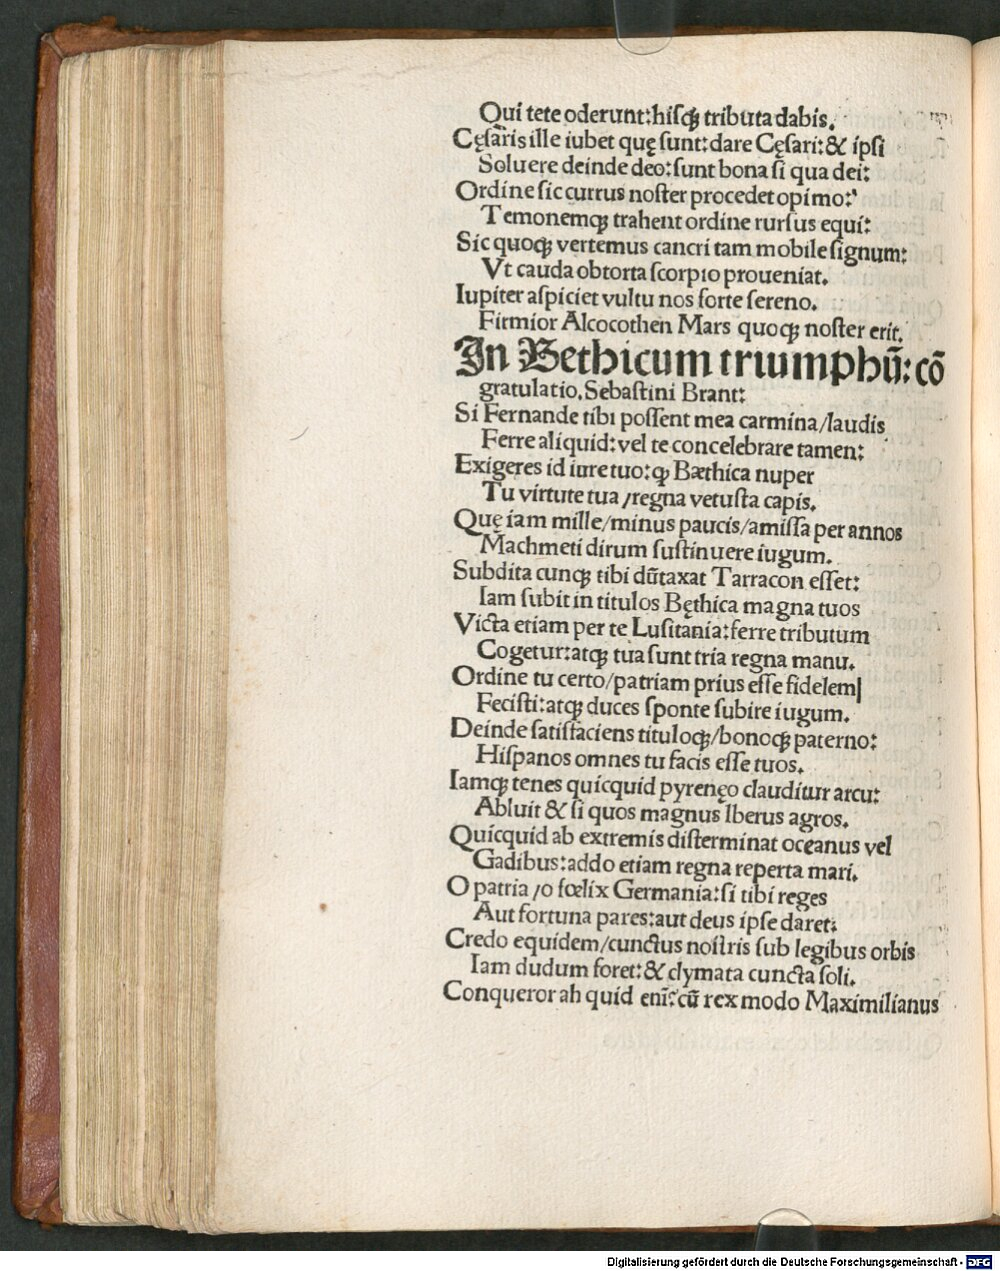 Qui tete oderunt:hisqꝫ tributa dabis.
Cęsaris ille iubet quę sunt:dare Cęsari:& ipsi
Soluere deinde deo:sunt bona si qua dei:
Ordine sic currus noster procedet opimo:
Temonemqꝫ trahent ordine rursus equi:
Sic quoqꝫ vertemus cancri tam mobile signum:
Vt cauda obtorta scorpio proueniat.
Iupiter aspiciet vultu nos forte sereno.
Firmior Alcocothen Mars quoqꝫ noster erit.
In Bethicum triumphū: cō
gratulatio. Sebastini Brant:
Si Fernande tibi possent mea carmina/laudis
Ferre aliquid:vel te concelebrare tamen:
Exigeres id iure tuo:ꝙ Bæthica nuper
Tu virtute tua /regna vetusta capis.
Quę iam mille/minus paucis/amissa per annos
Machmeti dirum sustinuere iugum.
Subdita cunqꝫ tibi dūtaxat Tarracon esset:
Iam subit in titulos Bęthica magna tuos
Victa etiam per te Lusitania:ferre tributum
Cogetur:atqꝫ tua sunt tria regna manu.
Ordine tu certo/patriam prius esse fidelem|
Fecisti:atqꝫ duces sponte subire iugum.
Deinde satisfaciens tituloqꝫ/bonoqꝫ paterno:
Hispanos omnes tu facis esse tuos.
Iamqꝫ tenes quicquid pyrenęo clauditur arcu:
Abluit & si quos magnus Iberus agros.
Quicquid ab extremis disterminat oceanus vel
Gadibus:addo etiam regna reperta mari.
O patria /o fœlix Germania:si tibi reges
Aut fortuna pares:aut deus ipse daret:
Credo equidem/cunctus nostris sub legibus orbis
Iam dudum foret:& clymata cuncta soli.
Conqueror ah quid enī?cū rex modo Maximilianus
Digitalisierung gefördert durch die Deutsche Forschungsgemeinschaft - DFG